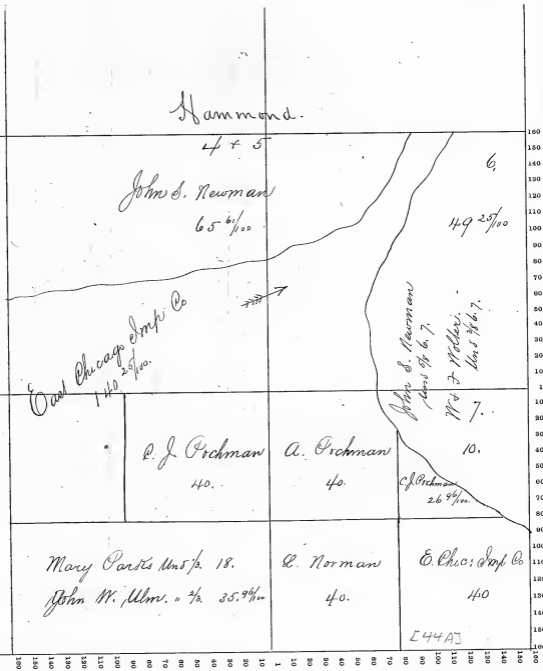 Hammond.
4 + 5
John S. Newman
65 61/100
6.
49 25/100
East Chicago Imp Co
140 25/100.
John S. Newman
Und 5/8 6.7.
W & F Wolter.
Und 3/8 6.7.
7.
10.
C. J. Pochman
40.
A. Pochman
40.
C J Pochman
26 96/100.
Mary Parks Und 1/3. 18.
John W. Ulm. " 2/3. 35.96/100
L. Norman
40.
E. Chic. Imp Co
40
[44A]
160
150
140
130
120
110
100
90
80
70
60
50
40
30
20
10
1
10
20
30
40
50
60
70
80
90
100
110
120
130
140
150
160
160 150 140 130 120 110 100 90 80 70 60 50 40 30 20 10 1 10 20 30 40 50 60 70 80 90 100 110 120 130 140 150 160